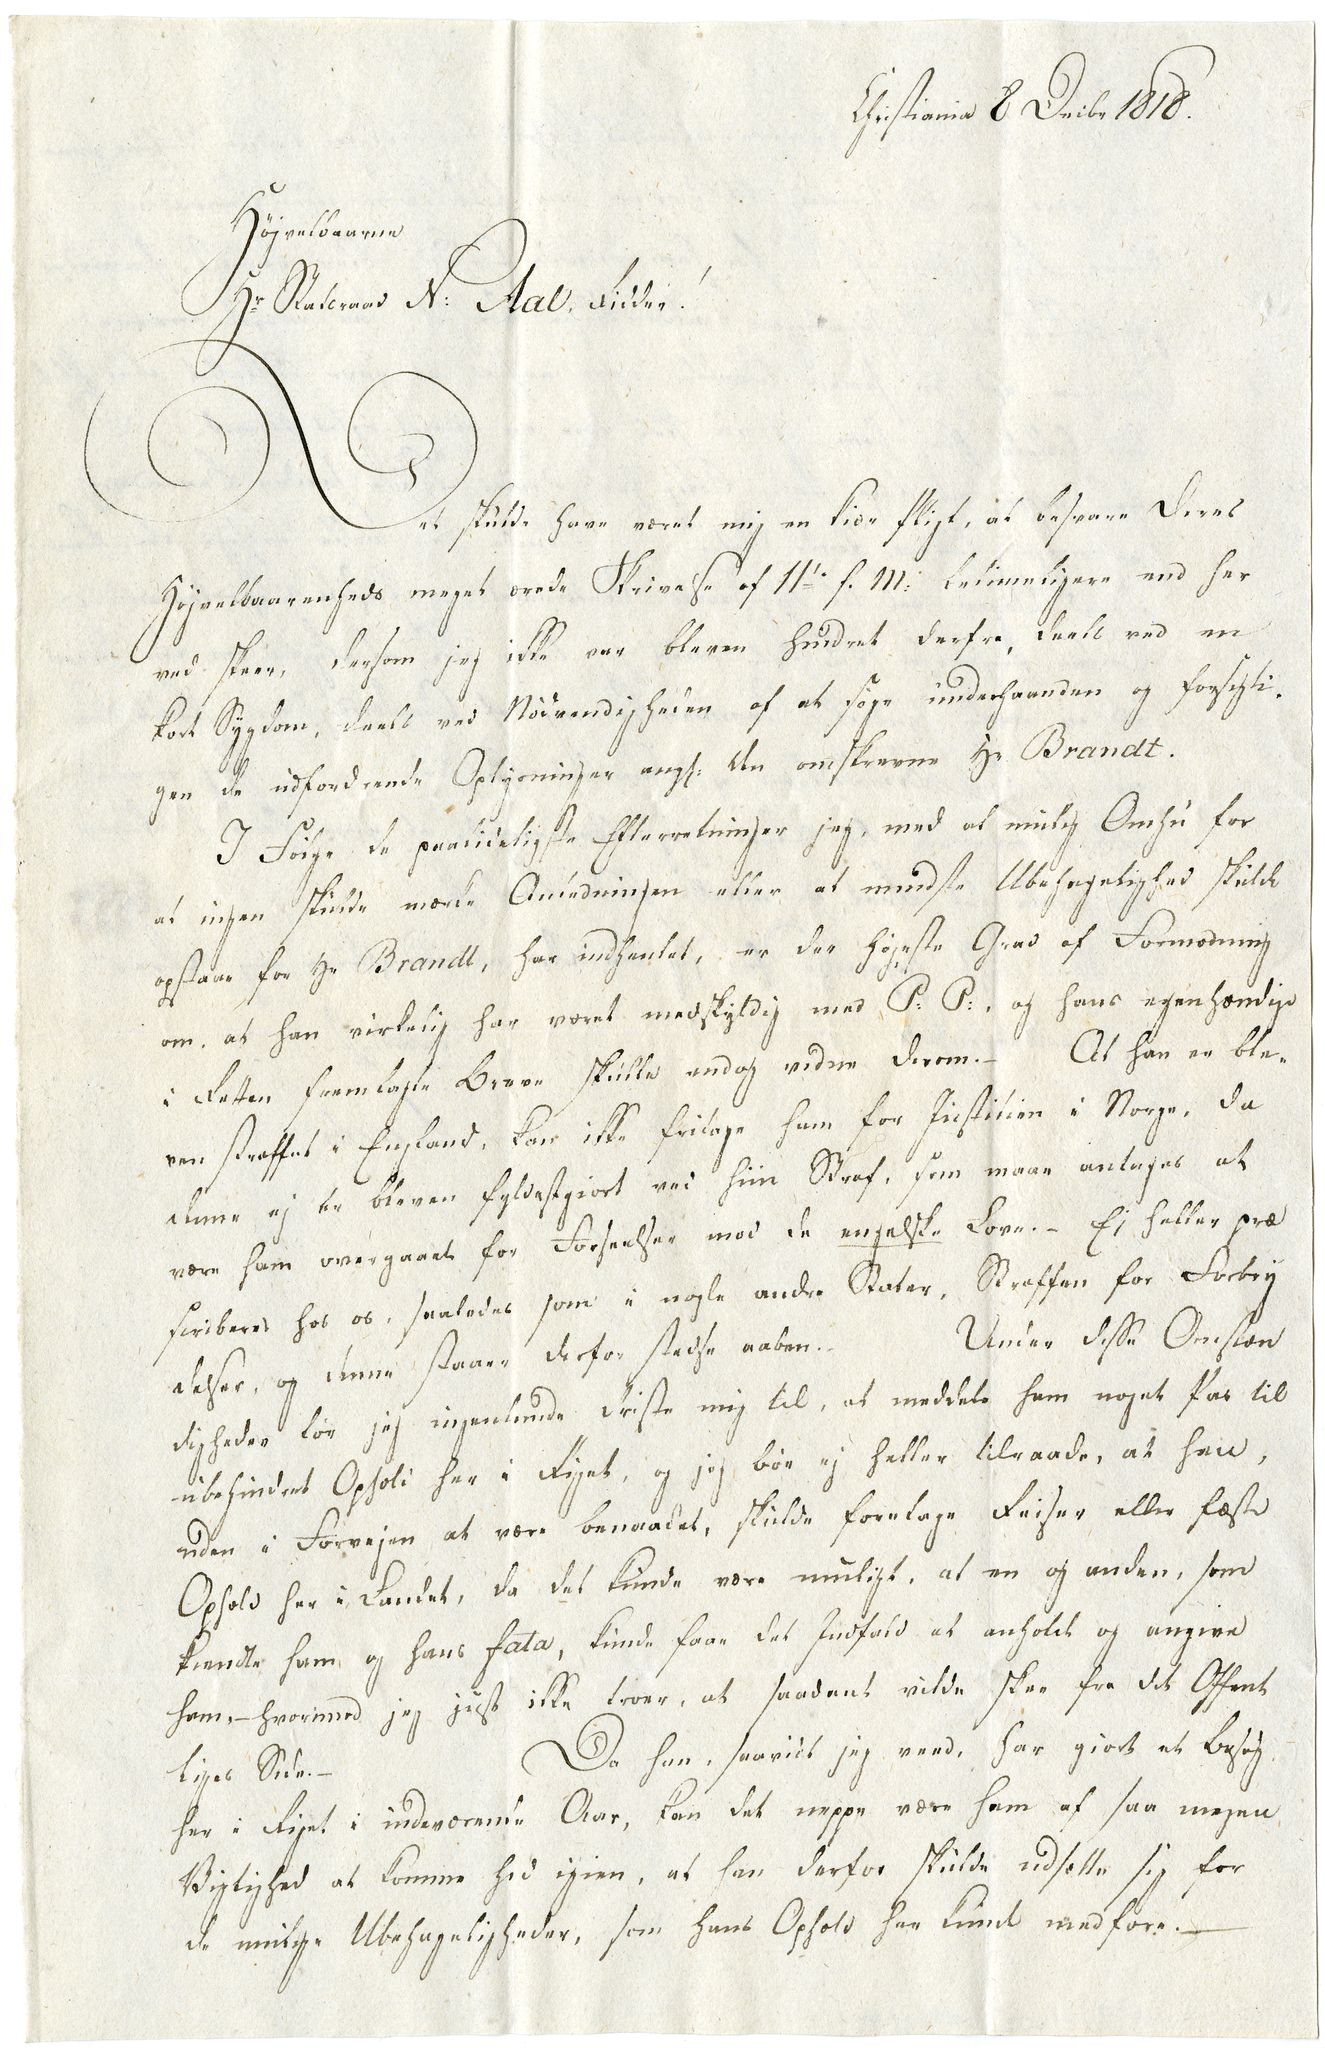 Christiania 8 Decbr 1818.
Højvelbaarne
Hr Statsraad N: Aal, Ridder!
Det skulde have været mig en kiær Pligt, at besvare Deres
Højvelbaarenheds meget ærede Skrivelse af 11te f. M: betimeligere end her
ved skeer, dersom jeg ikke var bleven hindret derfra, deels ved en
kort Sygdom, deels ved Nödvendigheden af at söge underhaanden og forsigti-
gen de udfordrende Oplysninger angl: den omskrevne Hr Brandt.
I Fölge de paalideligste Efterretninger jeg, med al mulig Omhu for
at ingen skulde mærke Anledningen eller at mindste Ubehagelighed skulde
opstaae for Hr Brandt, har indhentet, er der højeste Grad af Formodning
om, at han virkelig har været medskyldig med P: P:, og hans egenhændige
i Retten fremlagte Breve skulle endog vidne derom.- At han er ble-
ven straffet i England, kan ikke fritage ham for Justitien i Norge, da
denne ej er bleven fyldestgiort ved hiin Straf, som maae antages at
være ham overgaaet for Forseelser mod de engelske Love.- Ei heller præ
scriberes hos os, saaledes som i nogle andre Stater, Straffen for Forbry
delser, og denne staaer derfor stedse aaben.- Under disse Omstæn
digheder tör jeg ingenlunde driste mig til, at meddele ham noget Pas til
ubehindret Ophold her i Riget, og jeg bör ej heller tilraade, at han,
uden i Forvejen at være benaadet, skulde foretage Reiser eller fæste
Ophold her i Landet, da det kunde være muligt, at en og anden, som
kiendte ham og hans fata, kunde faae det Indfald at anholde og angive
ham,- hvorimod jeg just ikke troer, at saadant vilde skee fra det Offent
liges Side.- Da han, saavidt jeg veed, har giort et Besög
her i Riget i indeværende Aar, kan det neppe være ham af saa megen
Vigtighed at komme hid igien, at han derfor skulde udsætte sig for
de mulige Ubehageligheder, som hans Ophold her kunde medföre.-